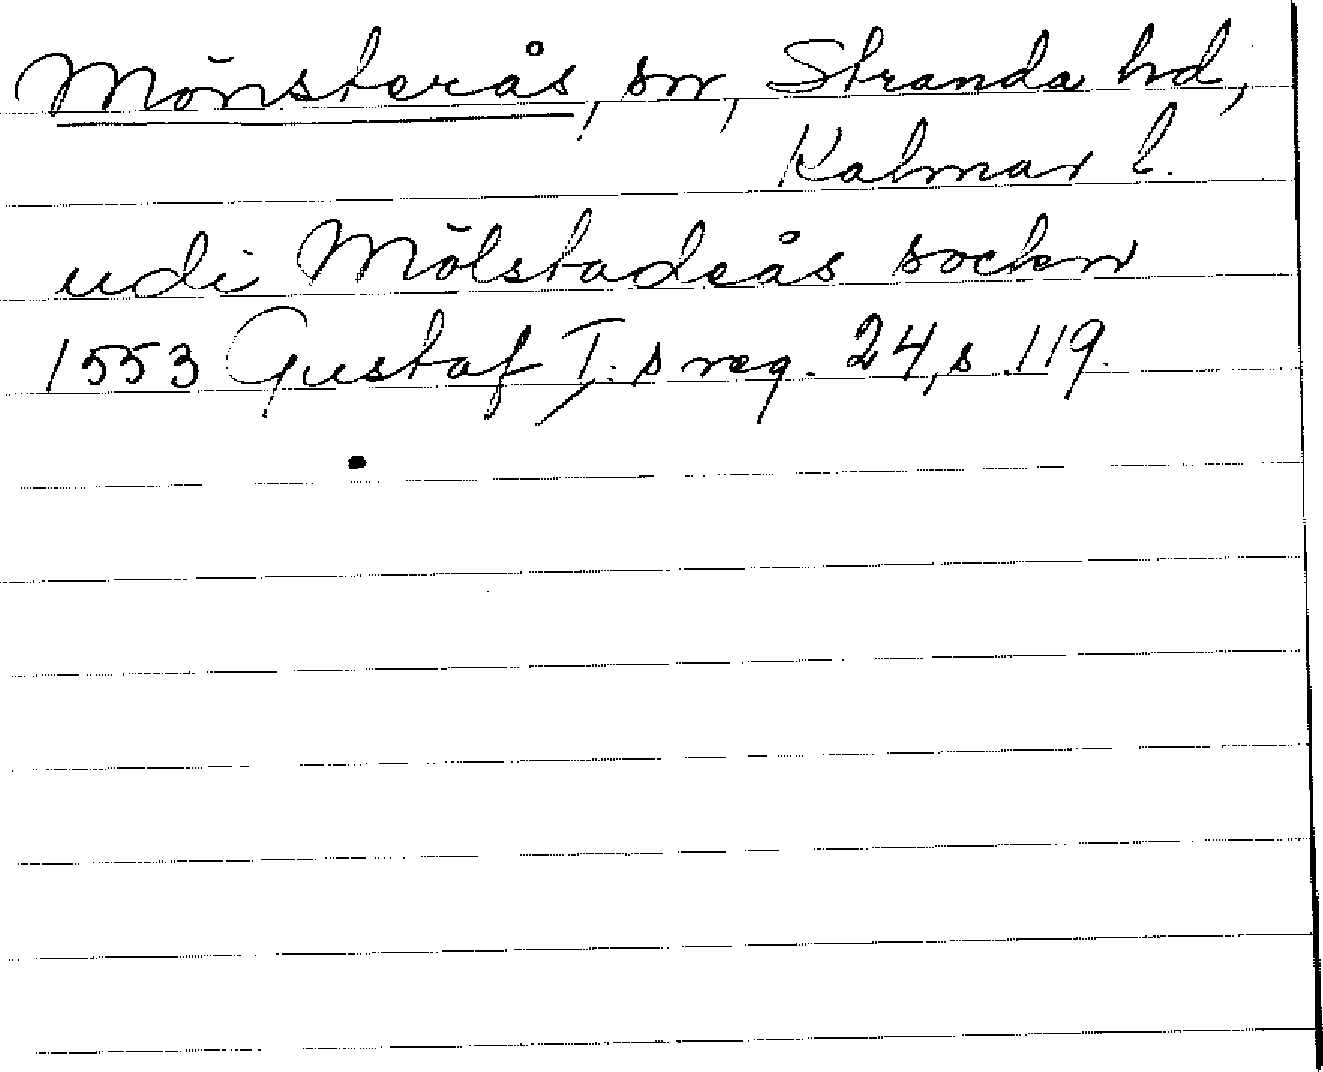 Mönsterås, sn, Stranda hd,
Kalmar l.
udi Mölstadeås socken
1553 Gustaf I:s reg. 24, s. 119.